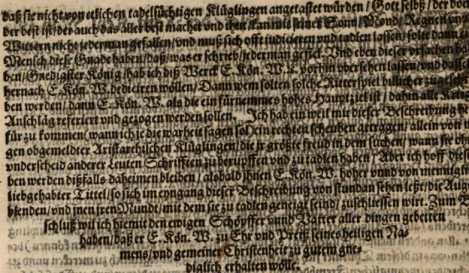 daß sie nicht von etlichen tadelsüchtigen Klüglingen angetastet würden / Gott selbst / der doch
der best ist / der auch das aller best machet und ihm kan mit seiner Sonn / Mond / Regnen und
Wittern nicht jederman gefallen / und muß sich offt judicieren und tadlen lassen / solte dann
Mensch diese Gnade haben / daß / was er schrieb / jederman gefiel. Und eben dieser ursachen
ben / Gnedigster König / hab ich diß Werck E. Kön. W. vorhin ubersehen lassen / und
hernach E. Kön. W. dedicieren wöllen / Dann wem solten solche Ritterspiel billicher
ben werden / dann E. Kön. W. als die ein fürnemmes hohes Hauptziel ist / dahin alle
Anschläg referiert und gezogen werden sollen. Ich hab ein weil mit dieser Beschreibung
für zu kommen / wann ich je die warheit sagen sol / ein rechten scheuhen getragen / allein von
gen obgemelter Aristarchischen Klüglingen / die jr gröste freud in dem suchen / wann sie
underscheid anderer Leuten Schrifften zu berupffen und zu tadlen haben / Aber ich hoff
ben werden dißfalls daheimen bleiben / alsbald ihnen E. Kön. W. hoher unnd von menniglich
liebgehabter Tittel / so sich im eyngang dieser Beschreibung von stundan sehen leßt / die
blenden / und jnen jren Mundt / mit dem sie zu tadlen geneigt seind / zuschliessen wirt. Zum
schluß wil ich hiemit den ewigen Schöpffer unnd Vatter aller dingen gebetten
haben / daß er E. Kön. W. zu Ehr und Preiß seines heiligen Na-
mens / und gemeiner Christenheit zu gutem gne-
diglich erhalten wölle.